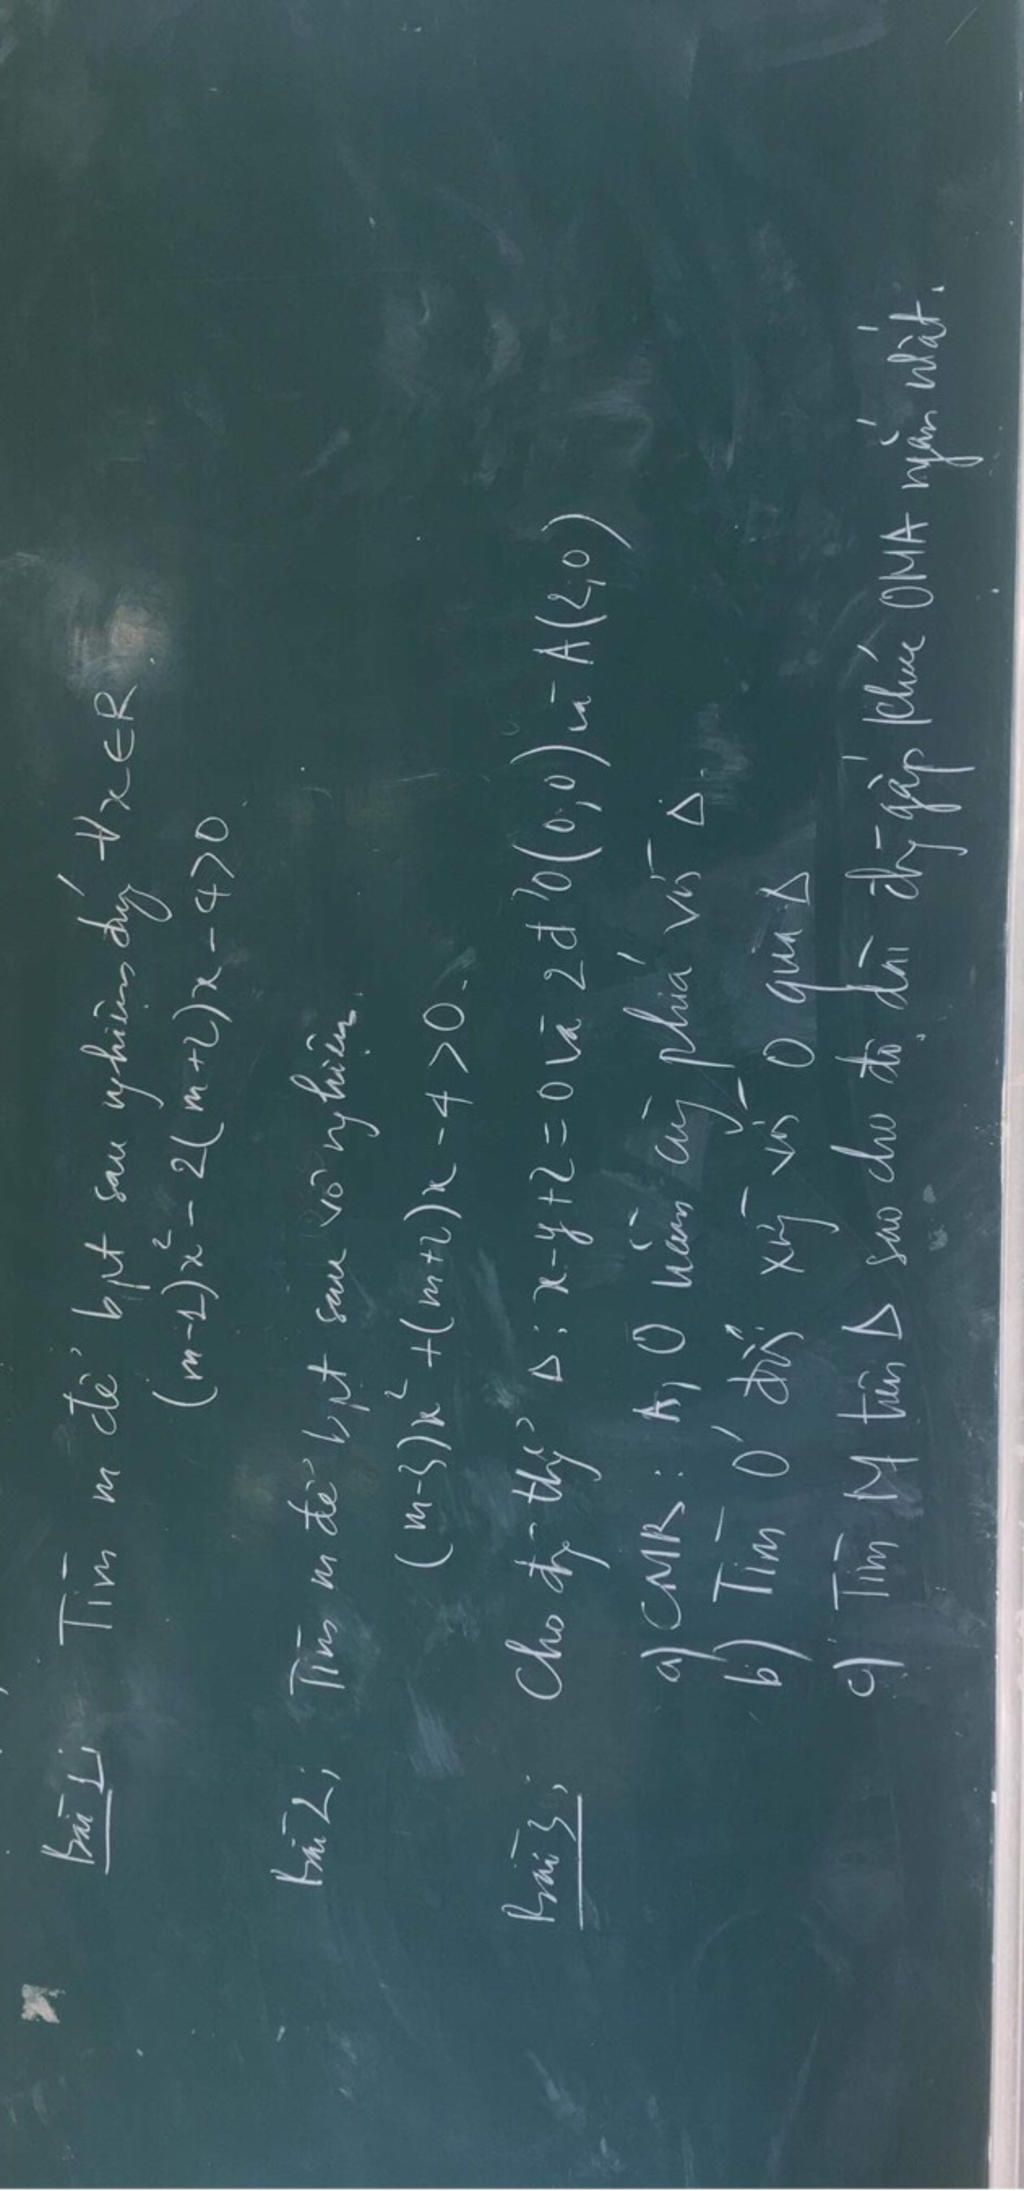 Bài 1: Tìm m để bpt sau nghiệm đúng ∀x∈R
(m-1)x² - 2(m+2)x - 4>0
Bài 2: Tìm m để bpt sau vô nghiệm
(m-3)x² + (m+2)x - 4 > 0.
Bài 3: Cho đg thg Δ: x-y+2=0 và 2 đ' O(0;0) và A(2;0)
a) CMR: A, O nằm cùg phía với Δ.
b) Tìm O' đối xứg với O qua Δ
c) Tìm M trên Δ sao cho độ dài đg gấp khúc OMA ngắn nhất.